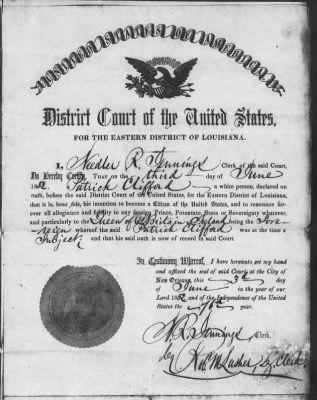 District Court of the United States,
FOR THE EASTERN DISTRICT OF LOUISIANA.
I, Needler R. Jennings Clerk of the said Court,
Do Hereby Certify, THAT ON the third day of June
1852 Patrick Clifford a white person, declared on
oath, before the said District Court of the United States, for the Eastern District of Louisiana,
that it is, bona fide, his intention to become a Citizen of the United States, and to renounce for-
ever all allegiance and fidelity to any foreign Prince, Potentate, State or Sovereignty whatever,
and particularly to the Queen of G. Britain & Ireland being the Sove-
reign whereof the said Patrick Clifford was at the time a
Subject and that his said oath is now of record in said Court.
In Testimony Whereof, I have hereunto set my hand
and affixed the seal of said Court, at the City of
New Orleans, this 3rd day
of June in the year of our
Lord 1852 and of the Independence of the United
States the 76th year.
N. R. Jennings, Clerk.
by Robt M Lusher, Dy. Clerk